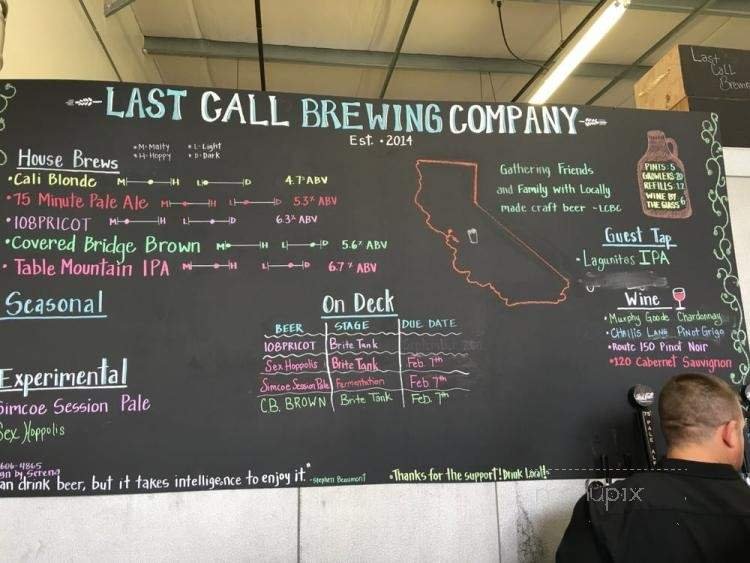 LAST CALL BREWING COMPANY
Est. • 2014
Last
Call
• M = Malty • L = Light
• H = Hoppy • D = Dark
House Brews
• Cali Blonde M H L D 4.7% ABV
• 75 Minute Pale Ale M H L D 5.3% ABV
• 108PRICOT M H L D 6.3% ABV
• Covered Bridge Brown M H L D 5.6% ABV
• Table Mountain IPA M H L D 6.7% ABV
Seasonal
Experimental
Simcoe Session Pale
Sex Hoppolis
On Deck
BEER STAGE DUE DATE
108PRICOT Brite Tank
Sex Hoppolis Brite Tank Feb. 7th
Simcoe Session Pale Fermentation Feb 7th
C.B. BROWN Brite Tank Feb. 7th
Gathering Friends
and Family with Locally
made craft beer ~LCBC
PINTS: 5
GROWLERS 20
REFILLS: 12
WINE BY
THE GLASS 6
Guest Tap
• Lagunitas IPA
Wine
• Murphy Goode Chardonnay
• Chalis Lane Pinot Grigo
• Route 150 Pinot Noir
• 120 Cabernet Sauvignon
606-4865
gn by Serena
an drink beer, but it takes intelligence to enjoy it." -Stephen Beaumont
• Thanks for the support! Drink Local!
menupix